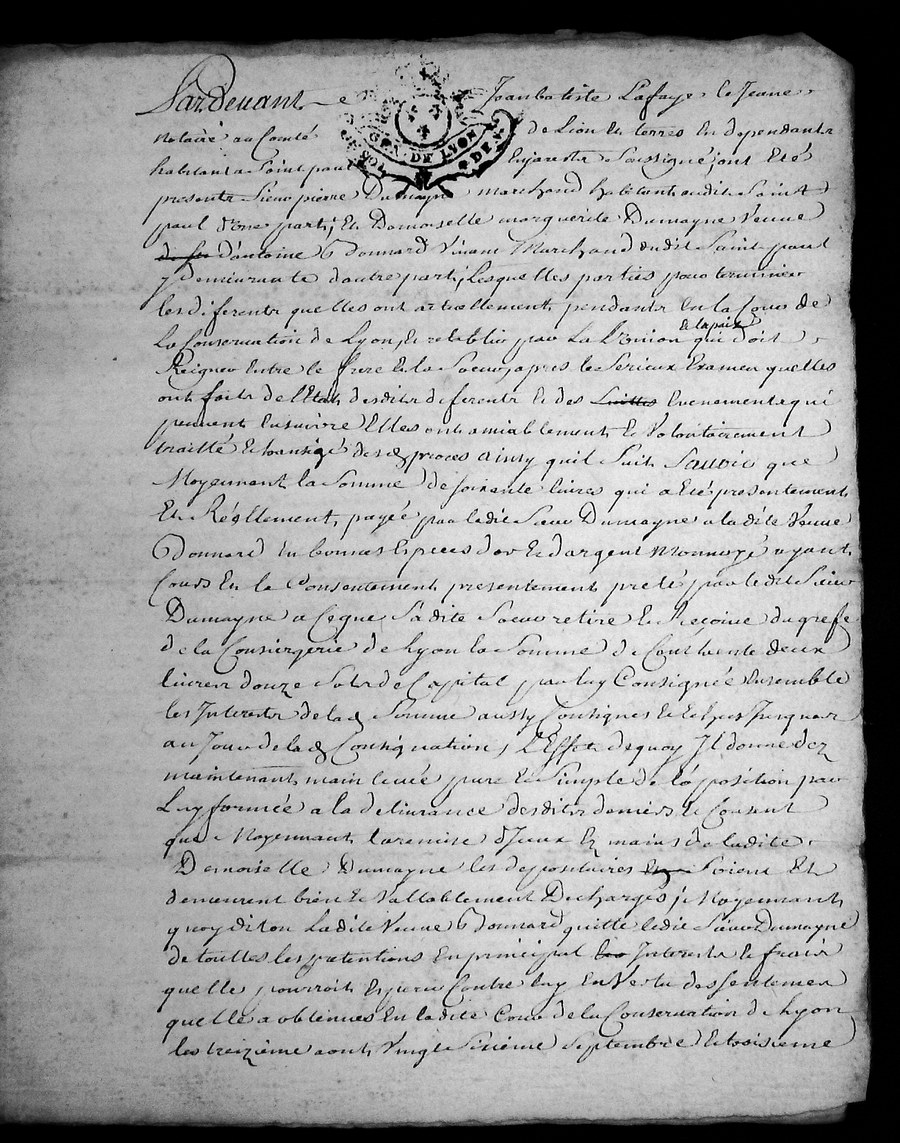 Pardevant Jean batiste Lafaye le Jeune
notaire au Comté de Lion et terres En dependants
habitant a Saint paul En jarests Soussigné, ont Eté
GEN. DE LYON
presents Sieur pierre Dumayne marchand habitant audit Saint
paul d'une part, Et Demoiselle marguerite Dumayne Veuve
d'antoine Bonnard Vivant Marchand dudit Saint paul
y demeurante d'autre part, Lesquelles parties pour terminer
les diferents quelles ont actuellement pendants En la Cour de
La Conservation de Lyon, Et retablir par La L'Union et la paix qui doit
Reigner Entre le frere Et la Soeur, apres le Serieux Examen quelles
ont faits de l'Etat desdits diferents Et des Suittes Evenements qui
peuvent Ensuivre Elles ont amiablement Et Volontairement
traitté Et transigé desd proces ainsy quil Suit Savoir que
Moyennant la Somme de soixente livres qui a Eté presentement
Et Réellement payée par ledit Sieur Dumayne a ladite Veuve
Bonnard En bonnes Especes d'or Et d'argent Monnoyé ayant
Cours Et le Consentement presentement preté par ledit Sieur
Dumayne a Ceque Sadite Soeur retire Et Reçoive du grefe
de la Consiergerie de Lyon la Somme de Cent trente deux
livres douze Sols de Capital par luy Consignée Ensemble
les Interests de lad Somme aussy Consignés Et Echus Jusques
au Jour de lad Consignation, a L'Effet de quoy Il donne dez
maintenant main levée pure Et Simple de l'opposition par
Luy formée a la delivrance desdits deniers Et Consent
que Moyennant la remise d'Iceux Ez mains de ladite
Demoiselle Dumayne les depositaires Soient Et
demeurent bien Et Vallablement Dechargés; Moyennant
quoy diton Ladite Veuve Bonnard quitte ledit Sieur Dumayne
de touttes les pretentions En principal Interests Et fraix
quelle pourroit Esperer Contre luy En Vertu des Sentences
quelle a obtenues En ladite Cour de la Conservation de Lyon
les treizieme aout Vingt Sixieme Septembre Et troisieme